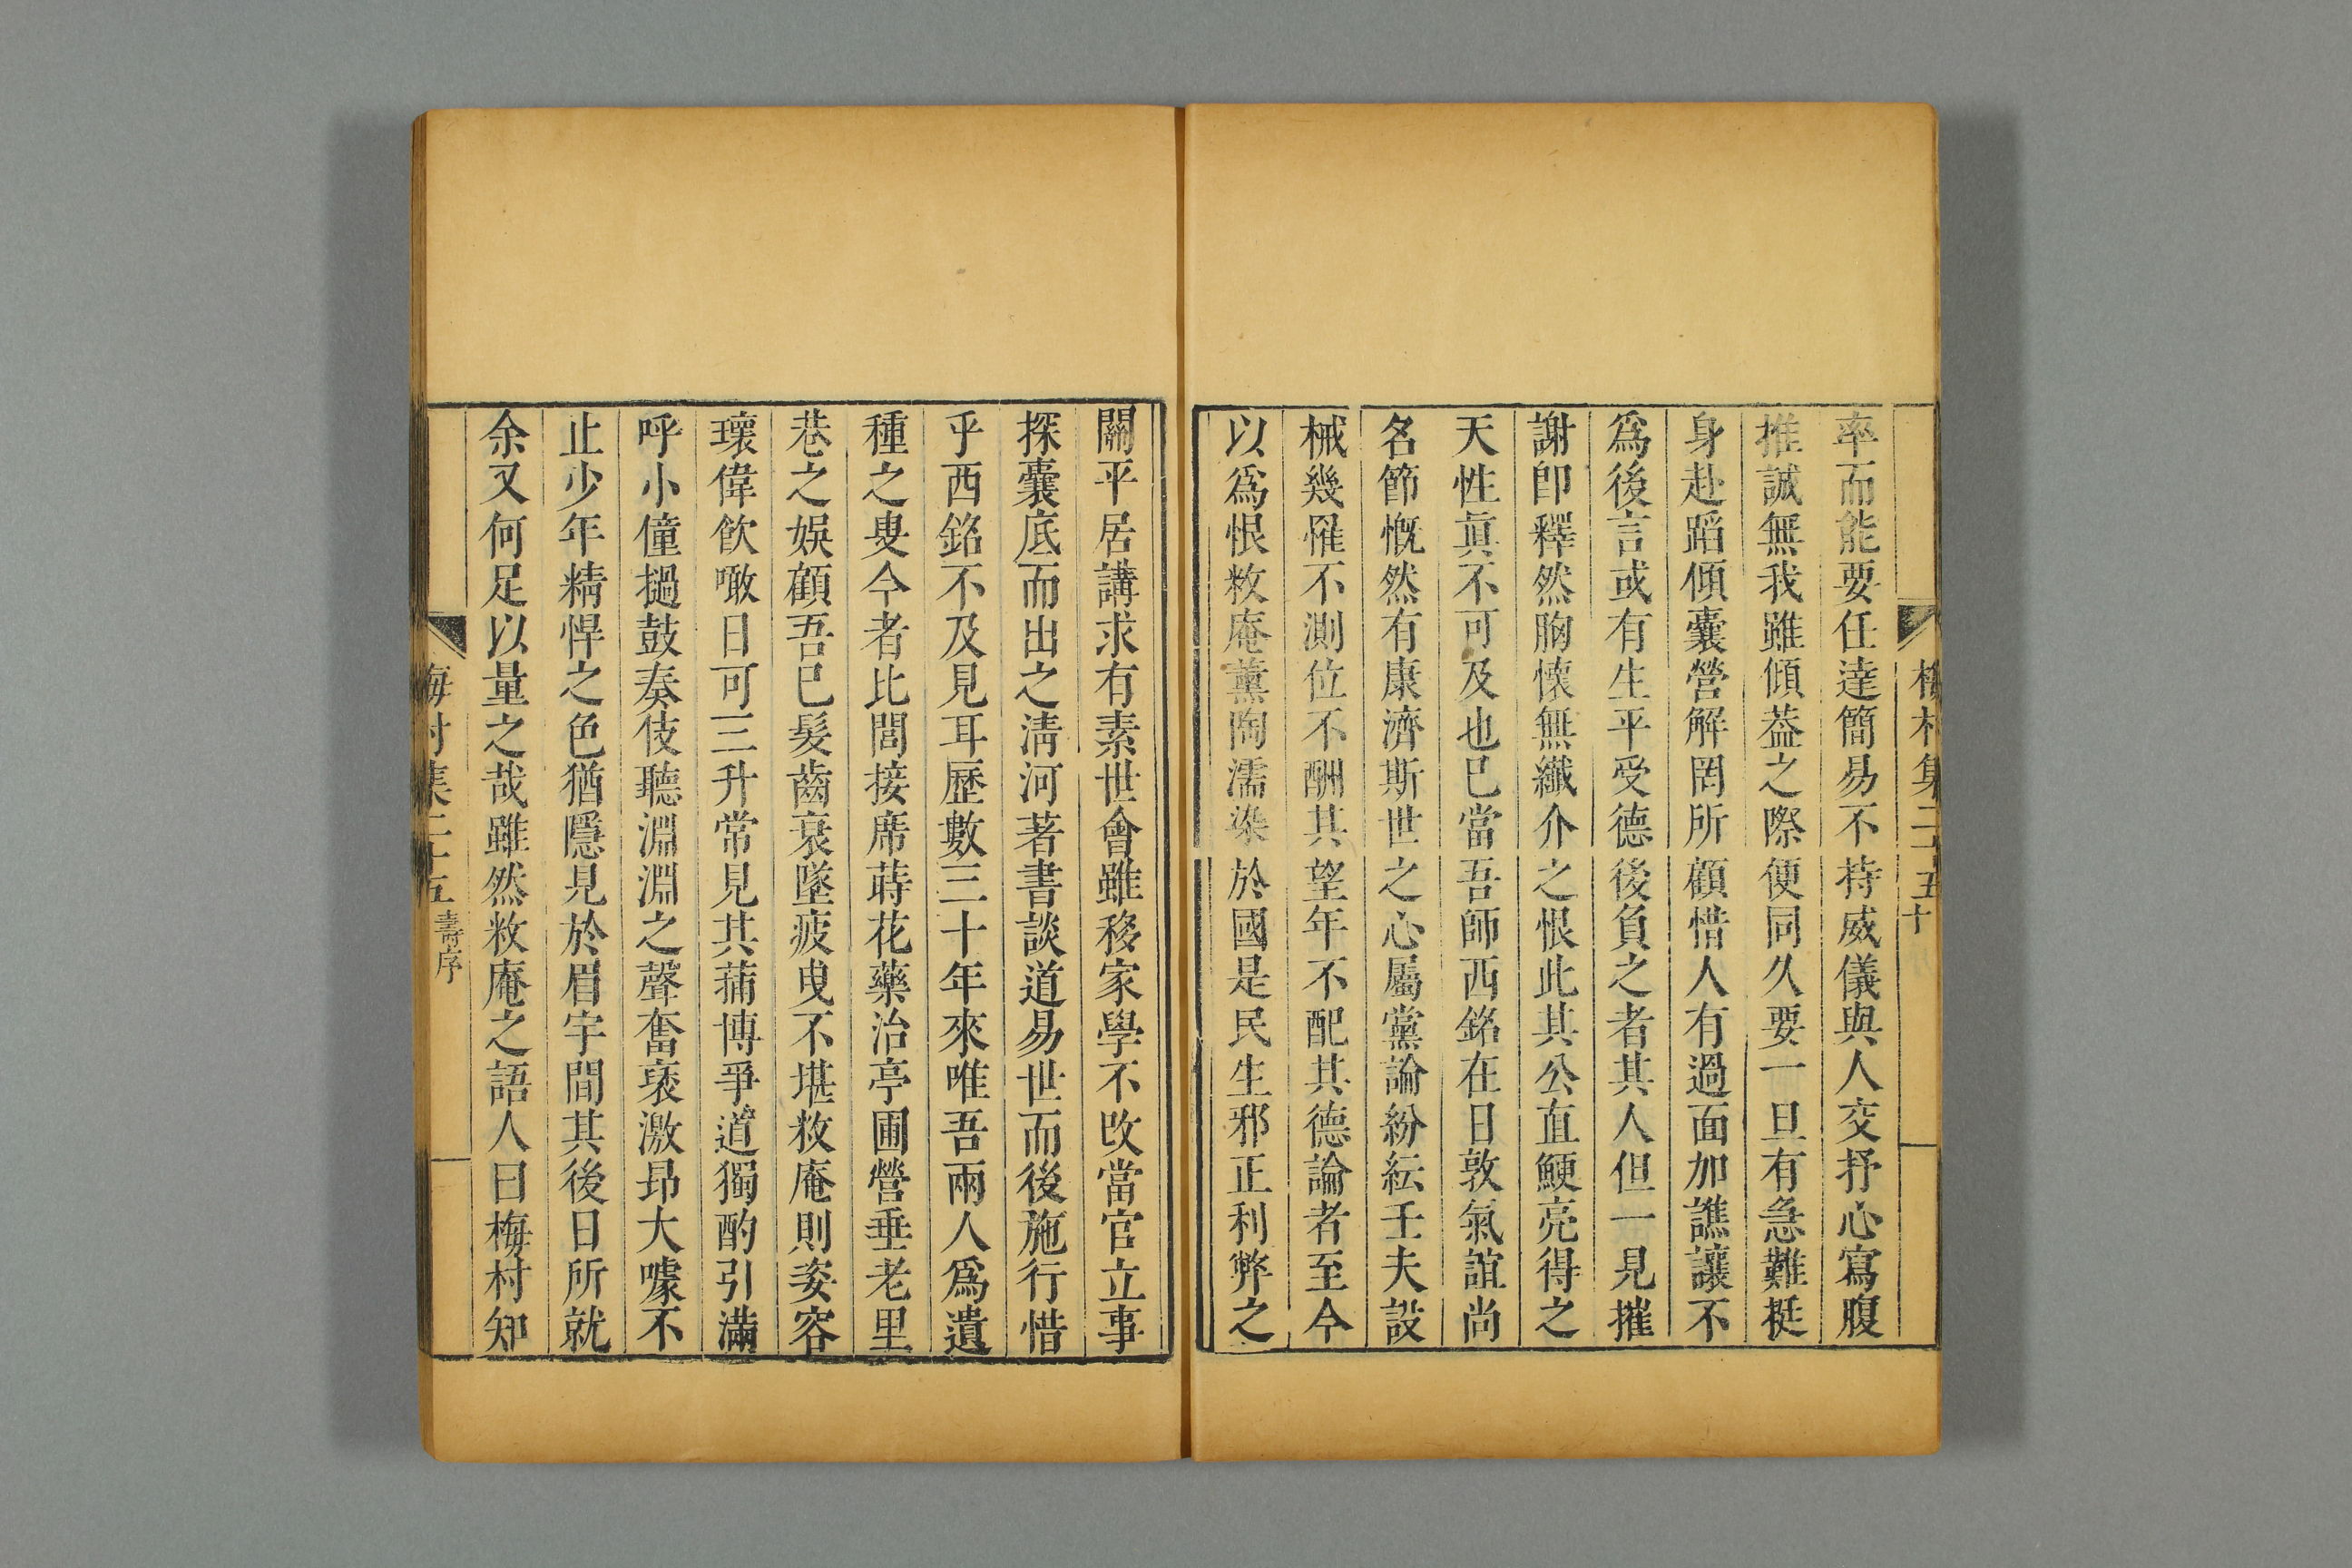 率而能要任達簡易不持威儀與人交抒心寫腹
推誠無我雖傾葢之際便同久要一旦有急難挺
身赴蹈傾囊營解罔所顧惜人有過面加譙讓不
爲後言或有生平受德後負之者其人但一見摧
謝卽釋然胸懷無纖介之恨此其公直鯁亮得之
天性眞不可及也已當吾師西銘在日敦氣誼尚
名節慨然有康濟斯世之心屬黨論紛紜壬夫設
械幾罹不測位不酬其望年不配其德論者至今
以爲恨敉庵薰陶濡染於國是民生邪正利弊之
關平居講求有素世會雖移家學不改當官立事
探囊底而出之淸河著書談道易世而後施行惜
乎西銘不及見耳歷數三十年來唯吾兩人爲遺
種之叟今者比閭接席蒔花藥治亭圃營垂老里
巷之娛顧吾已髮齒衰墜疲曳不堪敉庵則姿容
瓌偉飮噉日可三升常見其蒱博爭道獨酌引滿
呼小僮撾鼓奏伎聽淵淵之聲奮袠激昻大噱不
止少年精悍之色猶隱見於眉宇間其後日所就
余又何足以量之哉雖然敉庵之語人曰梅村知
梅村集二十五 十
梅村集二十五 壽序